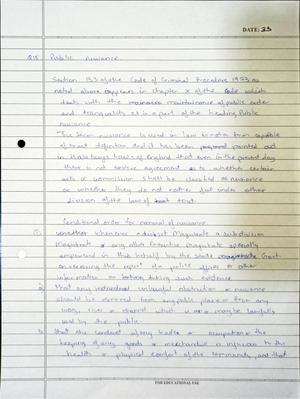 DATE: 23
Q15 Public nuisance
Section 133 of the Code of Criminal Procedure 1973 as
noted above appears in chapter X of the code which
deals with the maintainance of public order
and tranquality it is a part of the heading Public
nuisance
The term nuisance is used in law is not a term capable
of exact definition and it has been pointed out
in Halsburys Laws of England that even in the present day
there is not entire agreement as to whether certain
acts or ommissions shall be classified as nuisance
or whether they do not rather fall under other
division of the law of tout.
Conditional order for removal of nuisance.
① whenever a district Magistrate a subdivision
Magistrate or any other Executive magistrate specially
empowered in this behalf by the state Govt.
on receiving the report of a police officer or other
information on taking such evidence
② that any unlawful obstruction or nuisance
should be removed from any public place or from any
way, river or channel which is or may be lawfully
used by the public
③ that the conduct of any trade or occupation or the
keeping of any goods or merchandise is injurious to the
health or physical comfort of the community, and that
FOR EDUCATIONAL USE